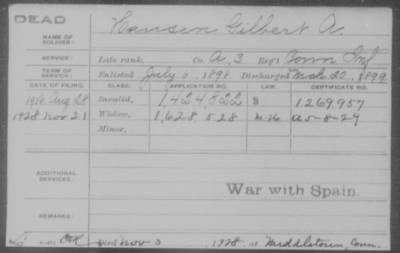 DEAD
NAME OF SOLDIER: Hansen Gilbert A.
SERVICE: Late rank, Co. A, 3 Reg't Conn Inf
TERM OF SERVICE: Enlisted July 6, 1898. Discharged Mch 20, 1899
DATE OF FILING. CLASS. APPLICATION NO. LAW. CERTIFICATE NO.
Aug 28 Invalid, 1,424,822 1,269,957
1928 Nov 21 Widow, 1,628,528 a 5-8-29
Minor,
ADDITIONAL SERVICES:
War with Spain.
REMARKS:
Died Nov 3, 1928 at Middletown, Conn.